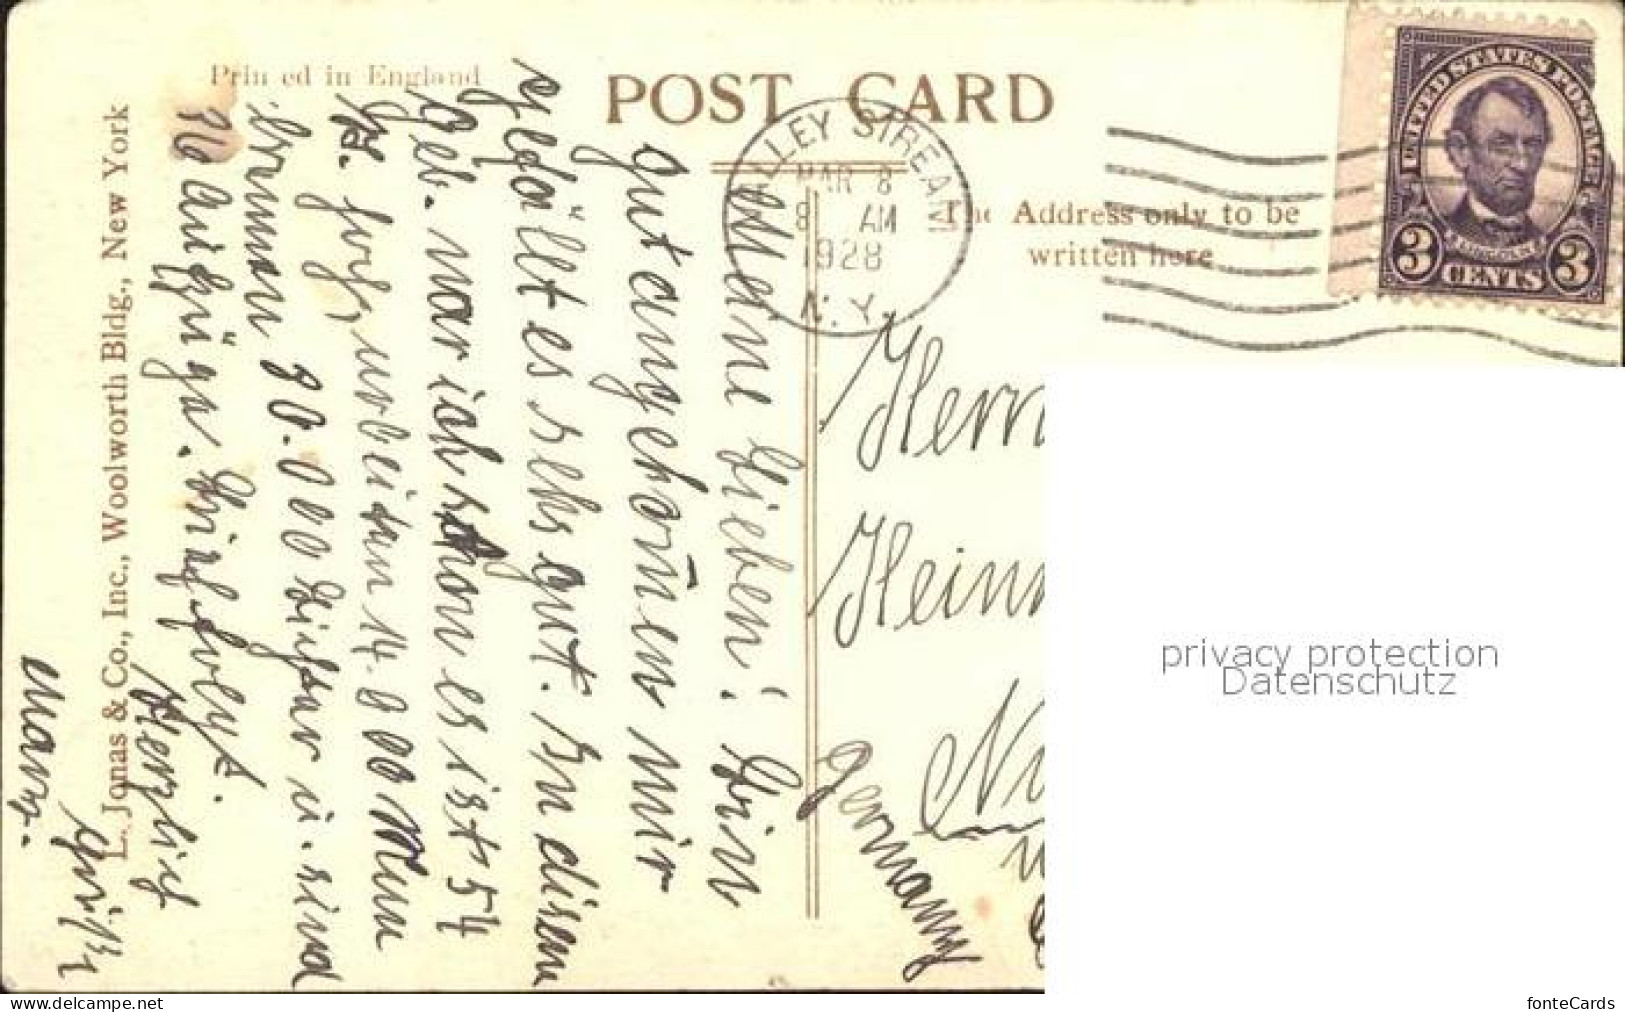 Prin ed in England
POST CARD
L. Jonas & Co., Inc., Woolworth Bldg., New York
VALLEY STREAM
MAR 8
8 AM
1928
N. Y.
The Address only to be
written here
UNITED STATES POSTAGE
LINCOLN
3 CENTS 3
Meine Lieben! Bin
gut angekom̄en mir
gefällt es sehr gut. In disem
Geb. war ich schon es ist 54
St. hoch, arbeiten 14.000 Mann
brennen 30.000 Lichter u. sind
76 Aufzüge. Brief folgt.
Herzlich
grüßt
Marg.
Herrn
Germany
privacy protection
Datenschutz
delcampe.net
fonteCards